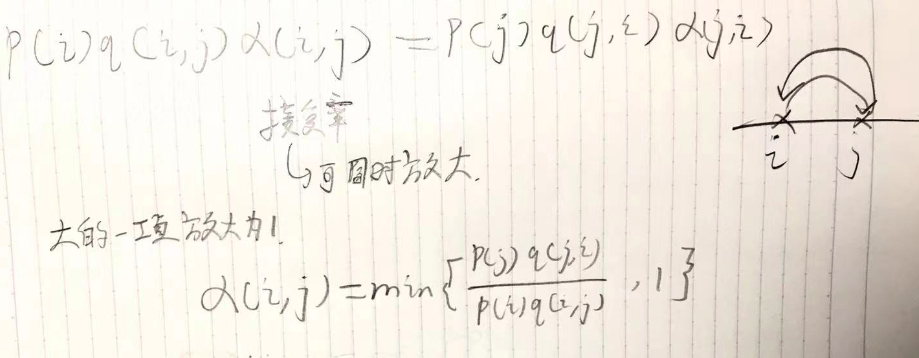 p(i)q(i,j)α(i,j) = p(j)q(j,i)α(j,i)
接受率
↳可同时放大.
i j
大的一项放大为1.
α(i,j)=min{p(j)q(j,i)/p(i)q(i,j), 1}